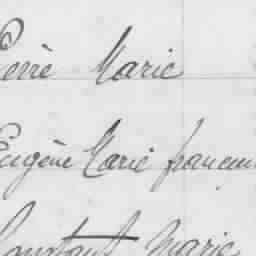 Pierre Marie
Eugène Marie françois
Constant Marie